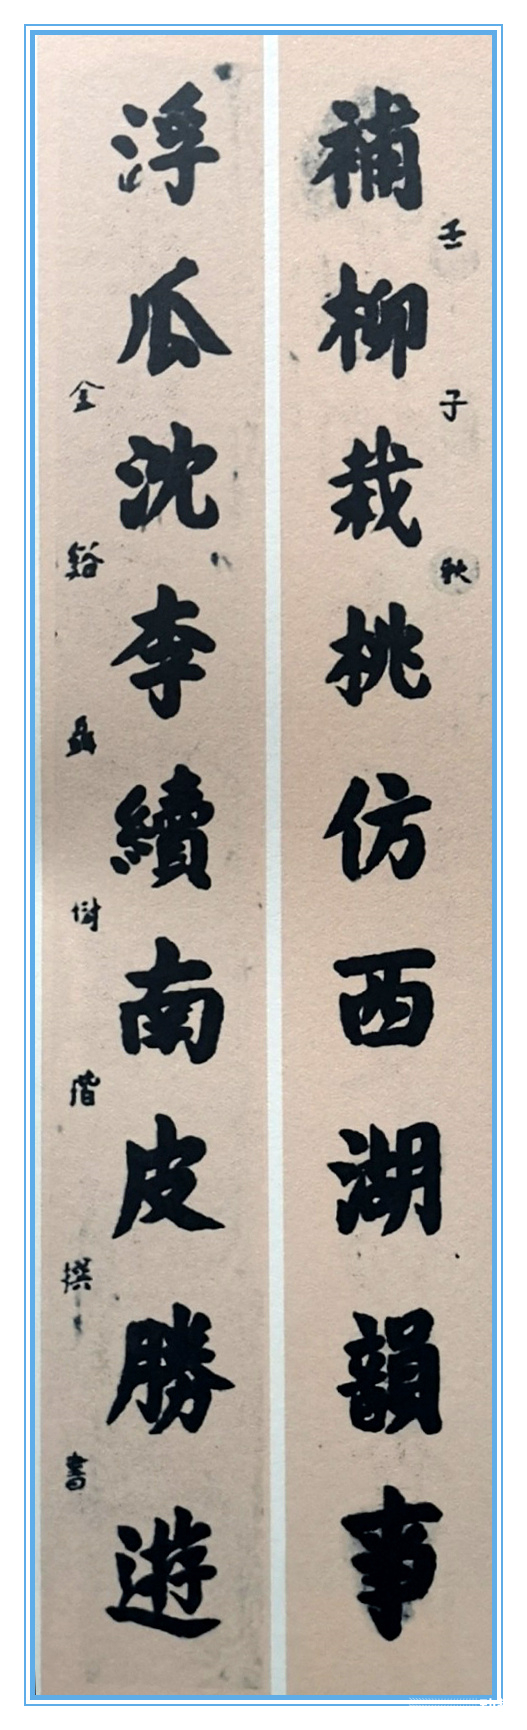 補柳栽桃仿西湖韻事
壬子秋
浮瓜沈李續南皮勝遊
金谿聶尌階撰書